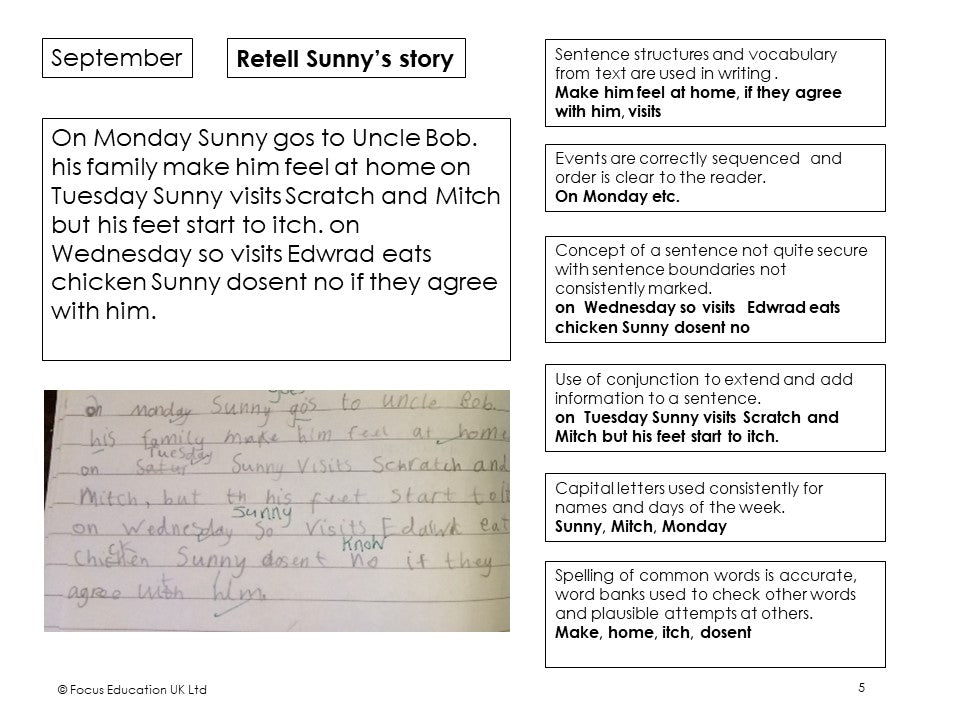 September
Retell Sunny's story
On Monday Sunny gos to Uncle Bob.
his family make him feel at home on
Tuesday Sunny visits Scratch and Mitch
but his feet start to itch. on
Wednesday so visits Edwrad eats
chicken Sunny dosent no if they agree
with him.
goes
on monday Sunny gos to uncle Bob.
his family make him feel at home
Tuesday
on Satur Sunny visits Schratch and
Mitch, but th his feet start to it
Sunny
on Wednesday So visits eat
Know
Chicken Sunny dosent no if they
agree with him.
Sentence structures and vocabulary
from text are used in writing .
Make him feel at home, if they agree
with him, visits
Events are correctly sequenced and
order is clear to the reader.
On Monday etc.
Concept of a sentence not quite secure
with sentence boundaries not
consistently marked.
on Wednesday so visits Edwrad eats
chicken Sunny dosent no
Use of conjunction to extend and add
information to a sentence.
on Tuesday Sunny visits Scratch and
Mitch but his feet start to itch.
Capital letters used consistently for
names and days of the week.
Sunny, Mitch, Monday
Spelling of common words is accurate,
word banks used to check other words
and plausible attempts at others.
Make, home, itch, dosent
© Focus Education UK Ltd
5